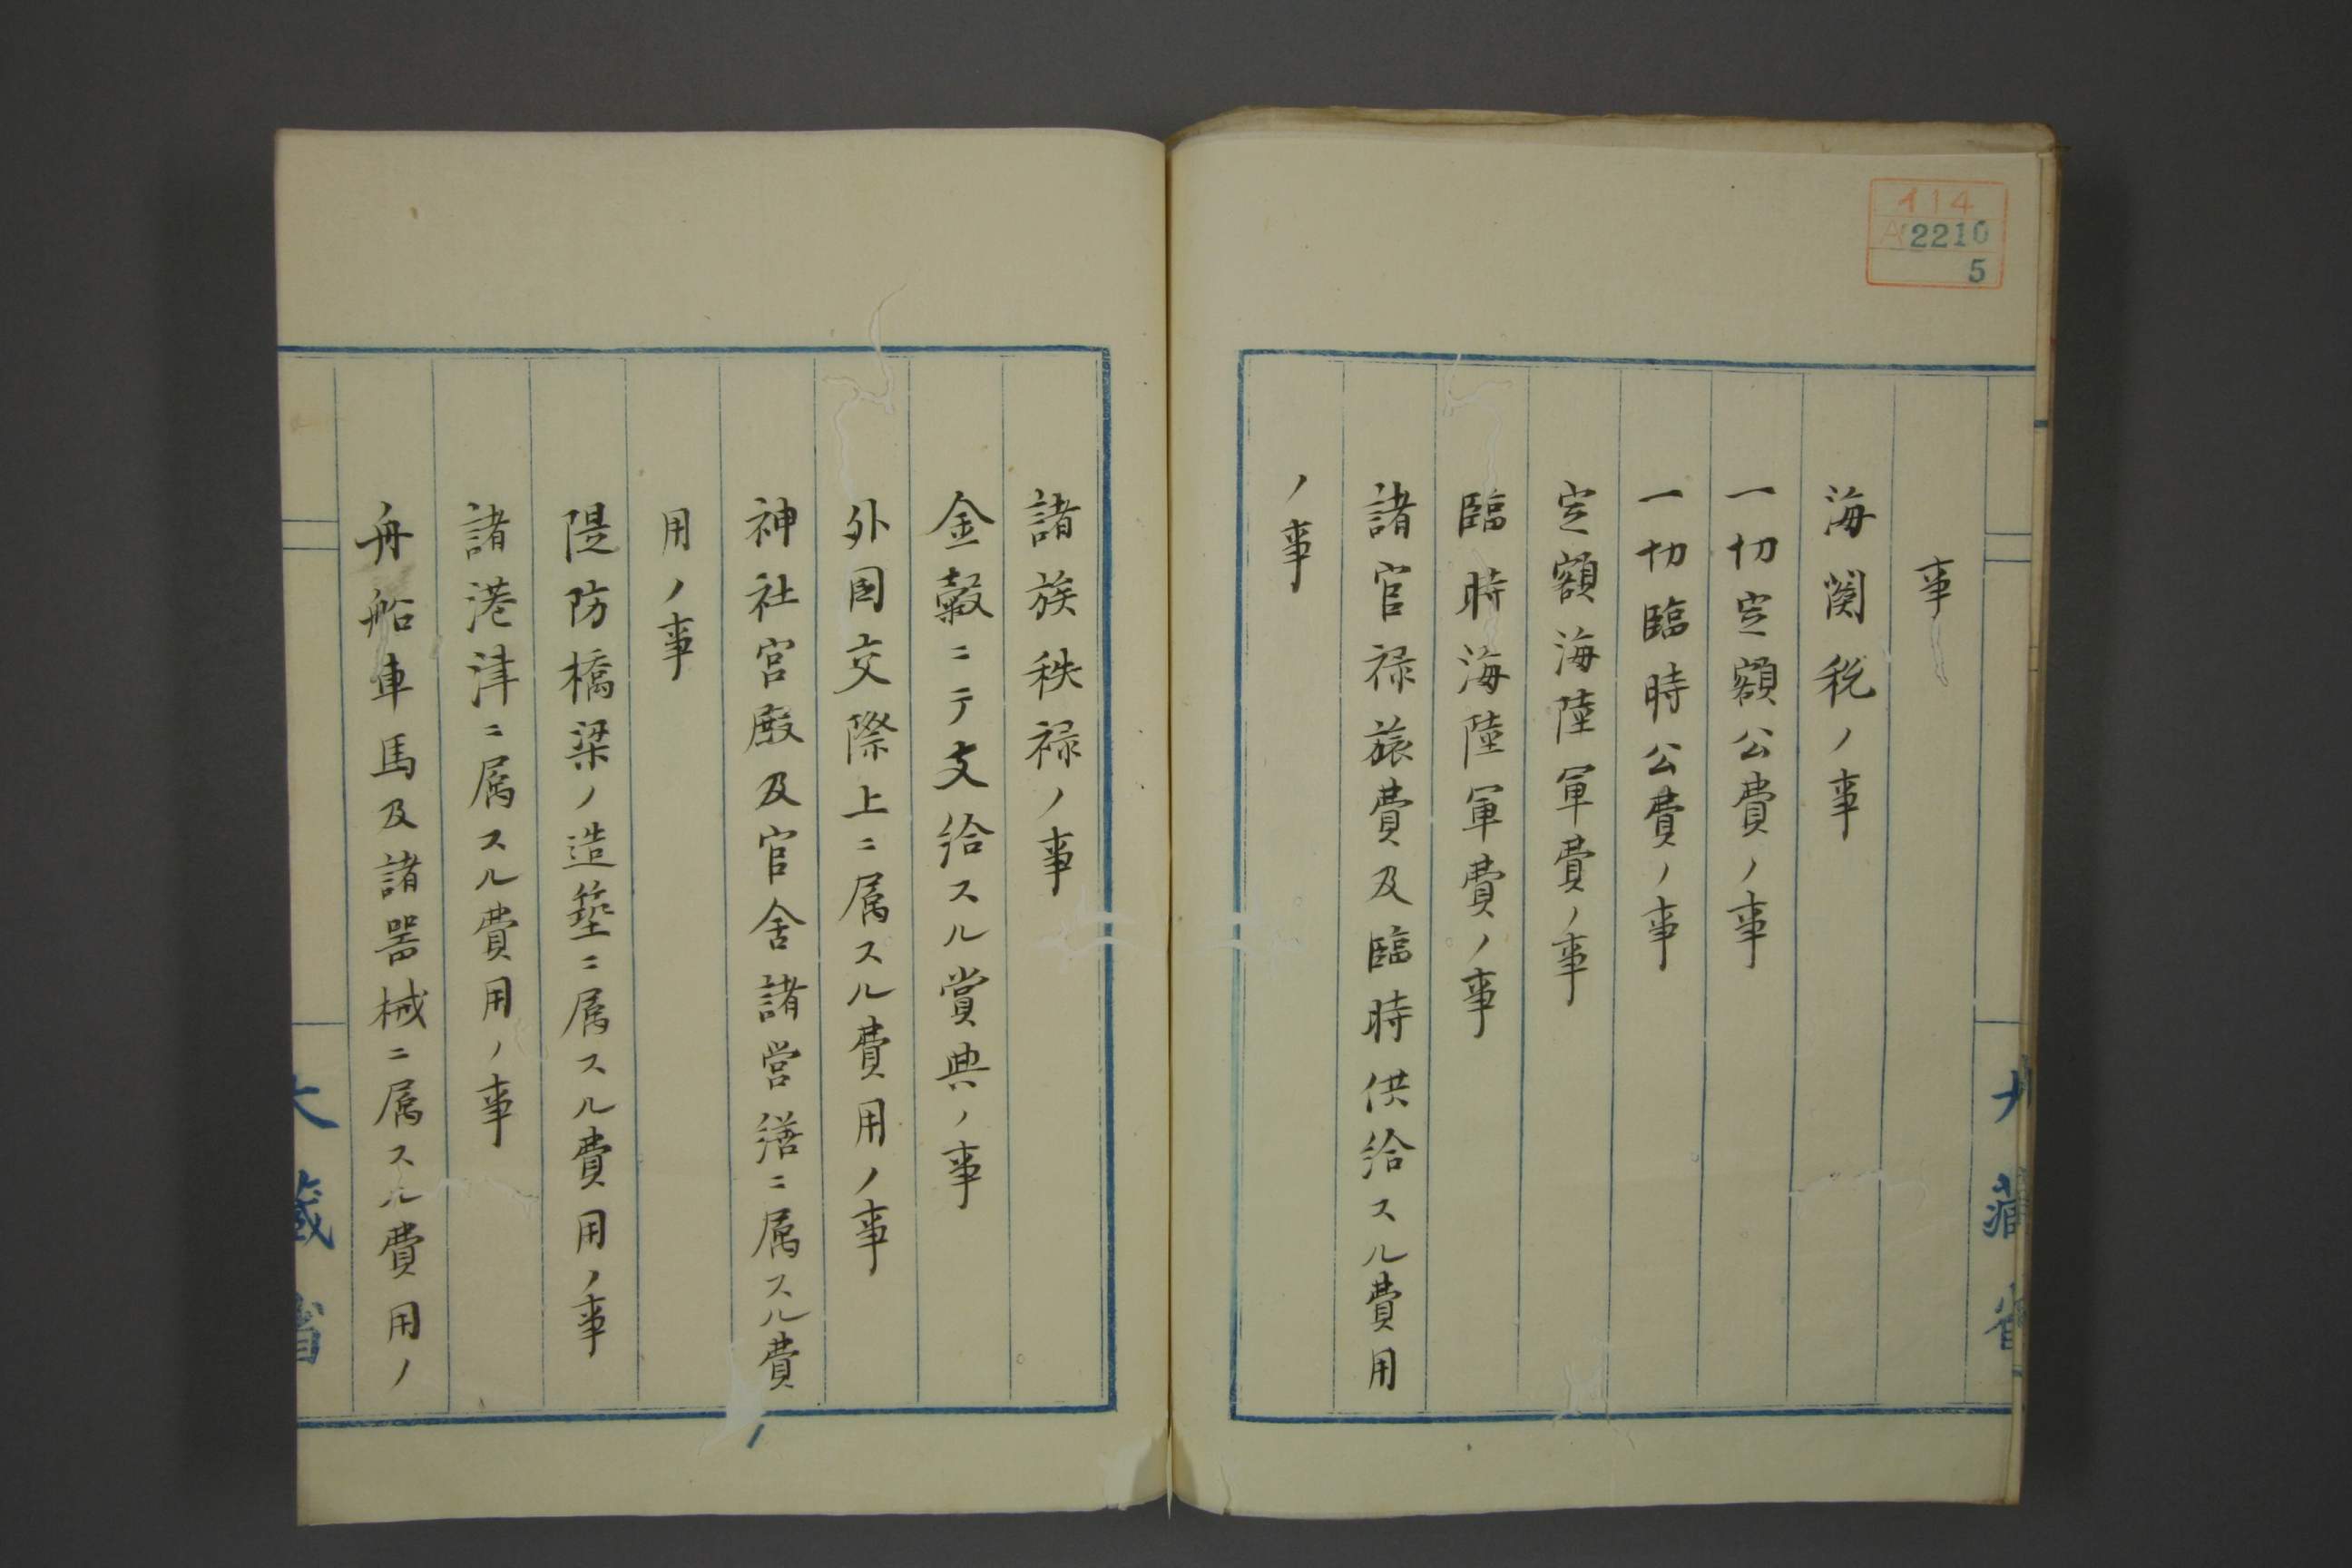 イ14
A2210
5
事
海関税ノ事
一切定額公費ノ事
一切臨時公費ノ事
定額海陸軍費ノ事
臨時海陸軍費ノ事
諸官禄旅費及臨時供給スル費用
ノ事
諸族秩禄ノ事
金穀ニテ支給スル賞典ノ事
外国交際上ニ属スル費用ノ事
神社宮殿及官舎諸営繕ニ属スル費
用ノ事
隄防橋梁ノ造築ニ属スル費用ノ事
諸港津ニ属スル費用ノ事
舟船車馬及諸器械ニ属スル費用ノ
大蔵省
大蔵省